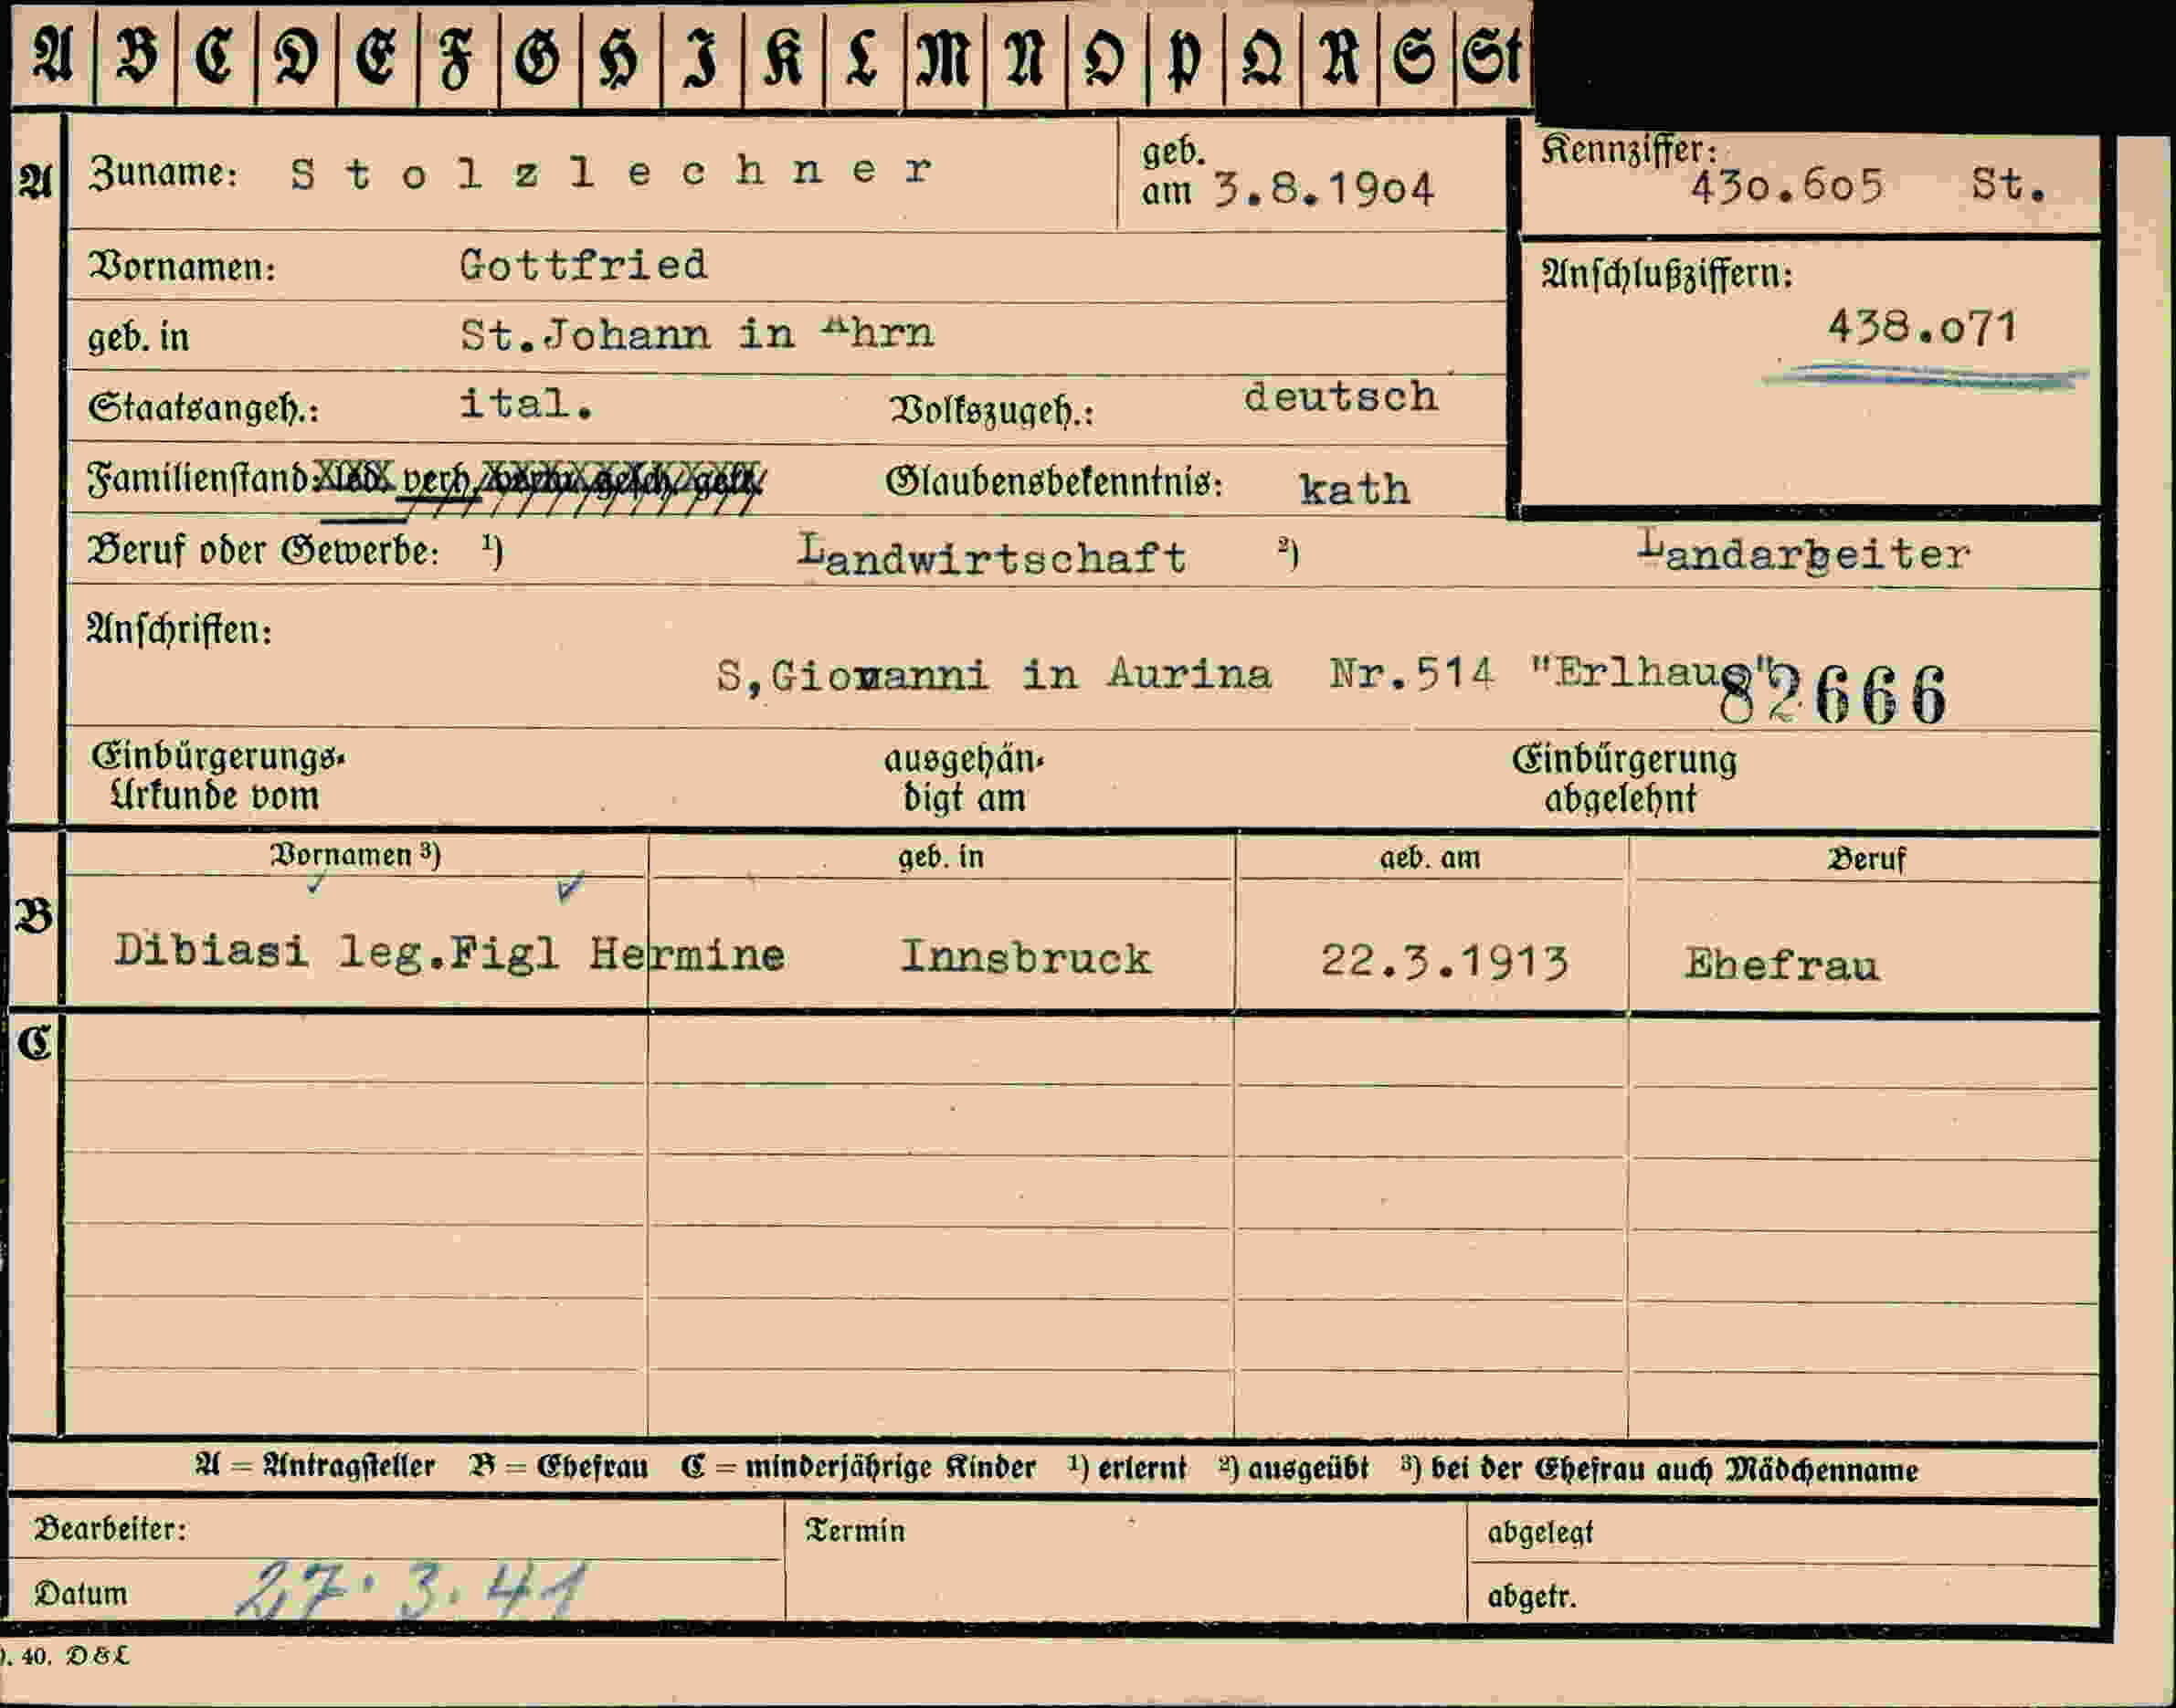 A B C D E F G H I K L M N O P Q R S St
A Zuname: Stolzlechner geb. am 3.8.1904 Kennziffer: 430.605 St.
Vornamen: Gottfried
geb. in St.Johann in Ahrn Anschlußziffern: 438.071
Staatsangeh.: ital. Volkszugeh.: deutsch
Familienstand: led. verh. verw. gesch. getr. Glaubensbekenntnis: kath
Beruf oder Gewerbe: ¹) Landwirtschaft ²) Landarbeiter
Anschriften:
S,Giovanni in Aurina Nr.514 "Erlhaus" 82666
Einbürgerungs- ausgehän- Einbürgerung
Urkunde vom digt am abgelehnt
Vornamen ³) geb. in geb. am Beruf
B Dibiasi leg.Figl Hermine Innsbruck 22.3.1913 Ehefrau
C
A = Antragsteller B = Ehefrau C = minderjährige Kinder ¹) erlernt ²) ausgeübt ³) bei der Ehefrau auch Mädchenname
Bearbeiter: Termin abgelegt
Datum 27.3.41 abgetr.
. 40. D&L